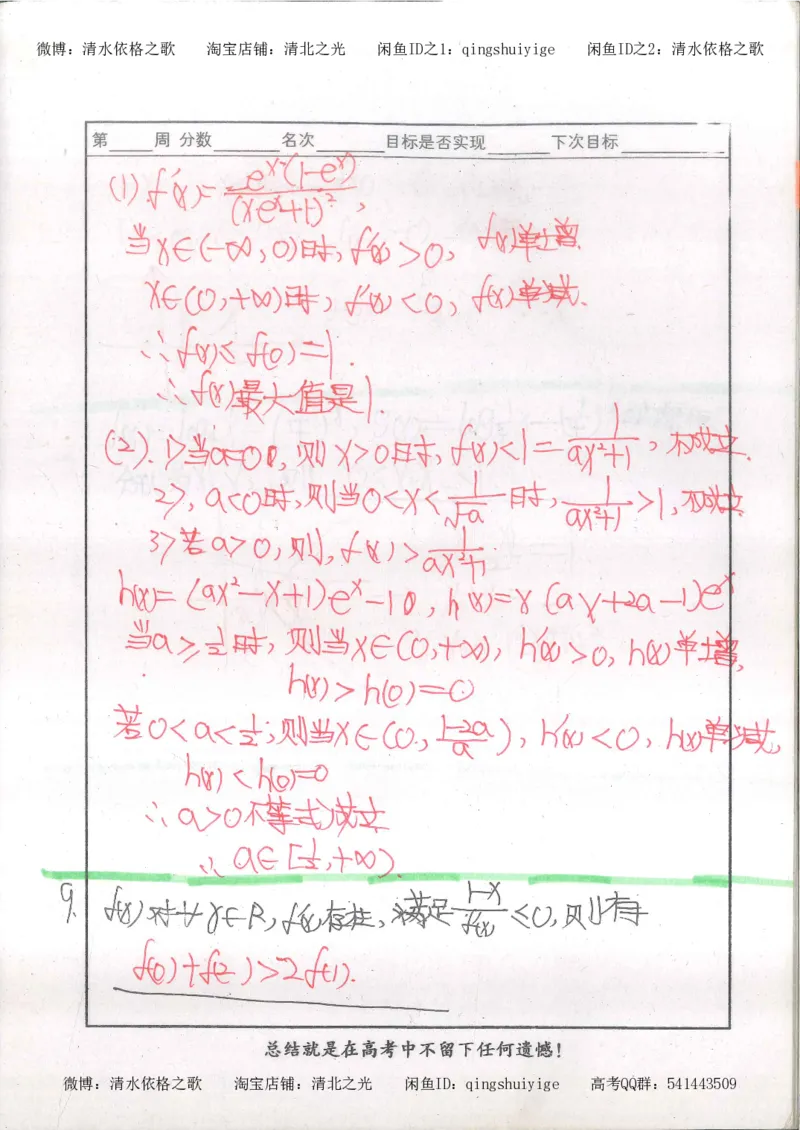 微博：清水依格之歌 淘宝店铺：清北之光 闲鱼ID之1：qingshuiyige 闲鱼ID之2：清水依格之歌
第____周 分数______ 名次______ 目标是否实现______ 下次目标__________
(1) f'(x)= e^x(1-e^x)/(xe^x+1)^2,
当x∈(-∞,0)时, f'(x)>0, f(x)单增.
x∈(0,+∞)时, f'(x)<0, f(x)单减.
∴f(x)≤f(0)=1.
∴f(x)最大值是1
(2). 1>当a=0时, 则x>0时, f(x)<1=1/(ax²+1), 不成立.
2>, a<0时, 则当0<x<1/√a时, 1/(ax²+1)>1, 不成立
3>若a>0, 则, f(x)>1/(ax²+1).
h(x)=(ax²-x+1)e^x-1, h'(x)=x(ax+2a-1)e^x
当a≥1/2时, 则当x∈(0,+∞), h'(x)>0, h(x)单增,
h(x)>h(0)=0
若0<a<1/2; 则当x∈(0, (1-2a)/a), h'(x)<0, h(x)单减,
h(x)<h(0)=0
∴a>0不等式成立
∴a∈[1/2,+∞).
9. f(x)对∀x∈R, f'(x)存在, 满足 (1-x)/f'(x)≤0, 则必有
f(0)+f(2)>2f(1).
总结就是在高考中不留下任何遗憾！
微博：清水依格之歌 淘宝店铺：清北之光 闲鱼ID：qingshuiyige 高考QQ群：541443509